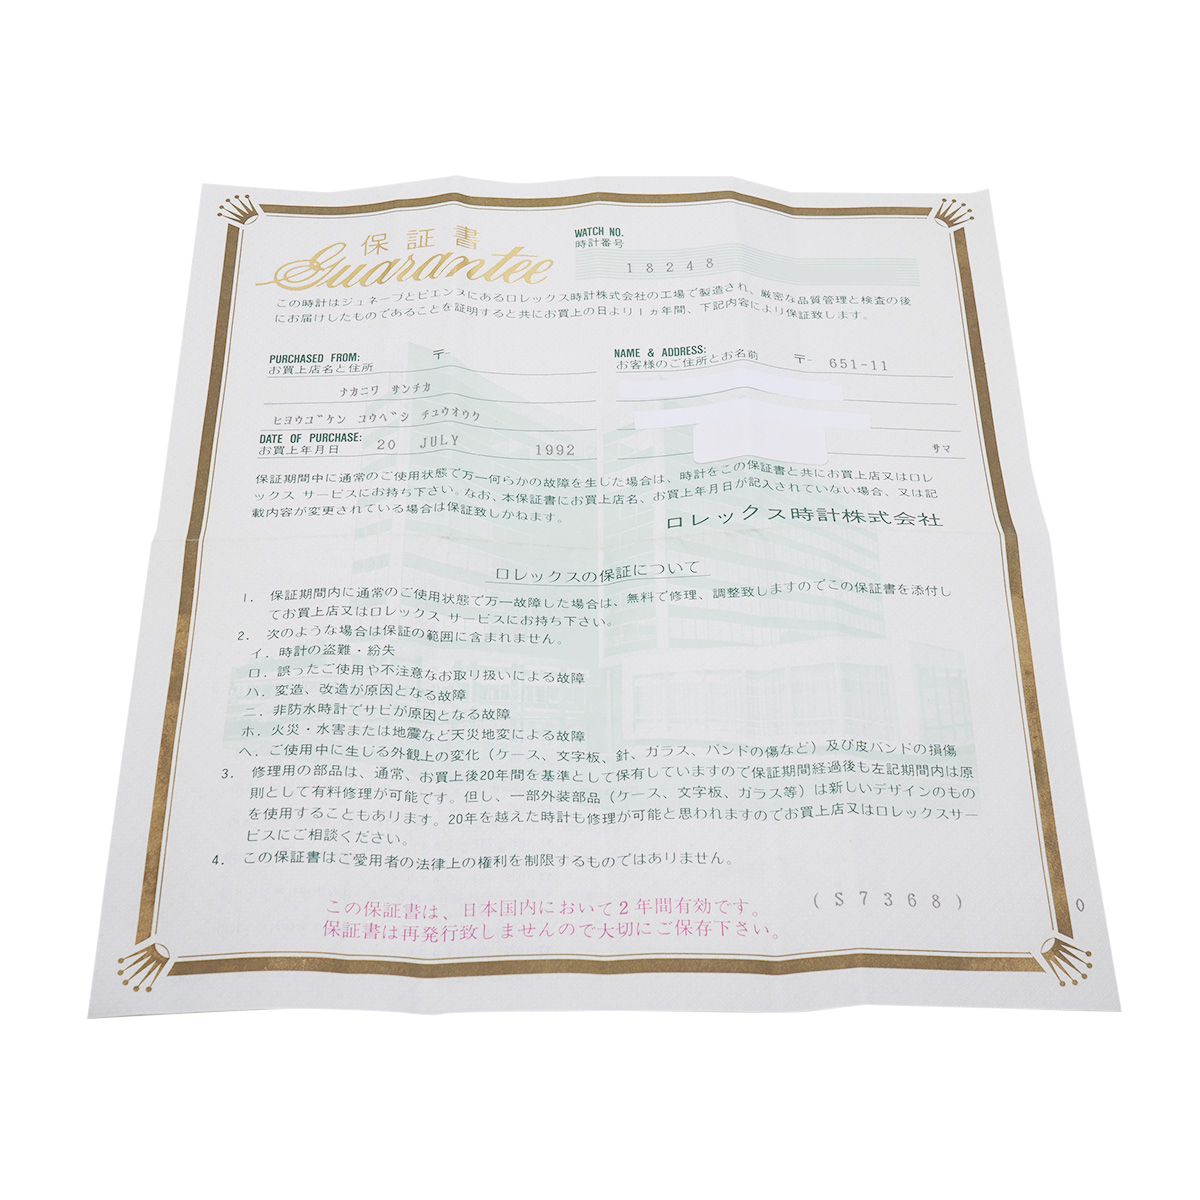 保証書
Guarantee
WATCH NO.
時計番号
18248
この時計はジュネーブとビエンヌにあるロレックス時計株式会社の工場で製造され、厳密な品質管理と検査の後
にお届けしたものであることを証明すると共にお買上の日より1ヵ年間、下記内容により保証致します。
PURCHASED FROM:
お買上店名と住所
〒-
ナカニワ サンチカ
ヒヨウゴケン コウベシ チユウオウク
DATE OF PURCHASE:
お買上年月日
20 JULY 1992
NAME & ADDRESS:
お客様のご住所とお名前
〒- 651-11
サマ
保証期間中に通常のご使用状態で万一何らかの故障を生した場合は、時計をこの保証書と共にお買上店又はロレ
ックス サービスにお持ち下さい。なお、本保証書にお買上店名、お買上年月日が記入されていない場合、又は記
載内容が変更されている場合は保証致しかねます。
ロレックス時計株式会社
ロレックスの保証について
1. 保証期間内に通常のご使用状態で万一故障した場合は、無料で修理、調整致しますのでこの保証書を添付し
てお買上店又はロレックス サービスにお持ち下さい。
2. 次のような場合は保証の範囲に含まれません。
イ. 時計の盗難・紛失
ロ. 誤ったご使用や不注意なお取り扱いによる故障
ハ. 変造、改造が原因となる故障
ニ. 非防水時計でサビが原因となる故障
ホ. 火災・水害または地震など天災地変による故障
ヘ. ご使用中に生じる外観上の変化（ケース、文字板、針、ガラス、バンドの傷など）及び皮バンドの損傷
3. 修理用の部品は、通常、お買上後20年間を基準として保有していますので保証期間経過後も左記期間内は原
則として有料修理が可能です。但し、一部外装部品（ケース、文字板、ガラス等）は新しいデザインのもの
を使用することもあります。20年を越えた時計も修理が可能と思われますのでお買上店又はロレックスサー
ビスにご相談ください。
4. この保証書はご愛用者の法律上の権利を制限するものではありません。
この保証書は、日本国内において2年間有効です。
保証書は再発行致しませんので大切にご保存下さい。
(S7368)
0